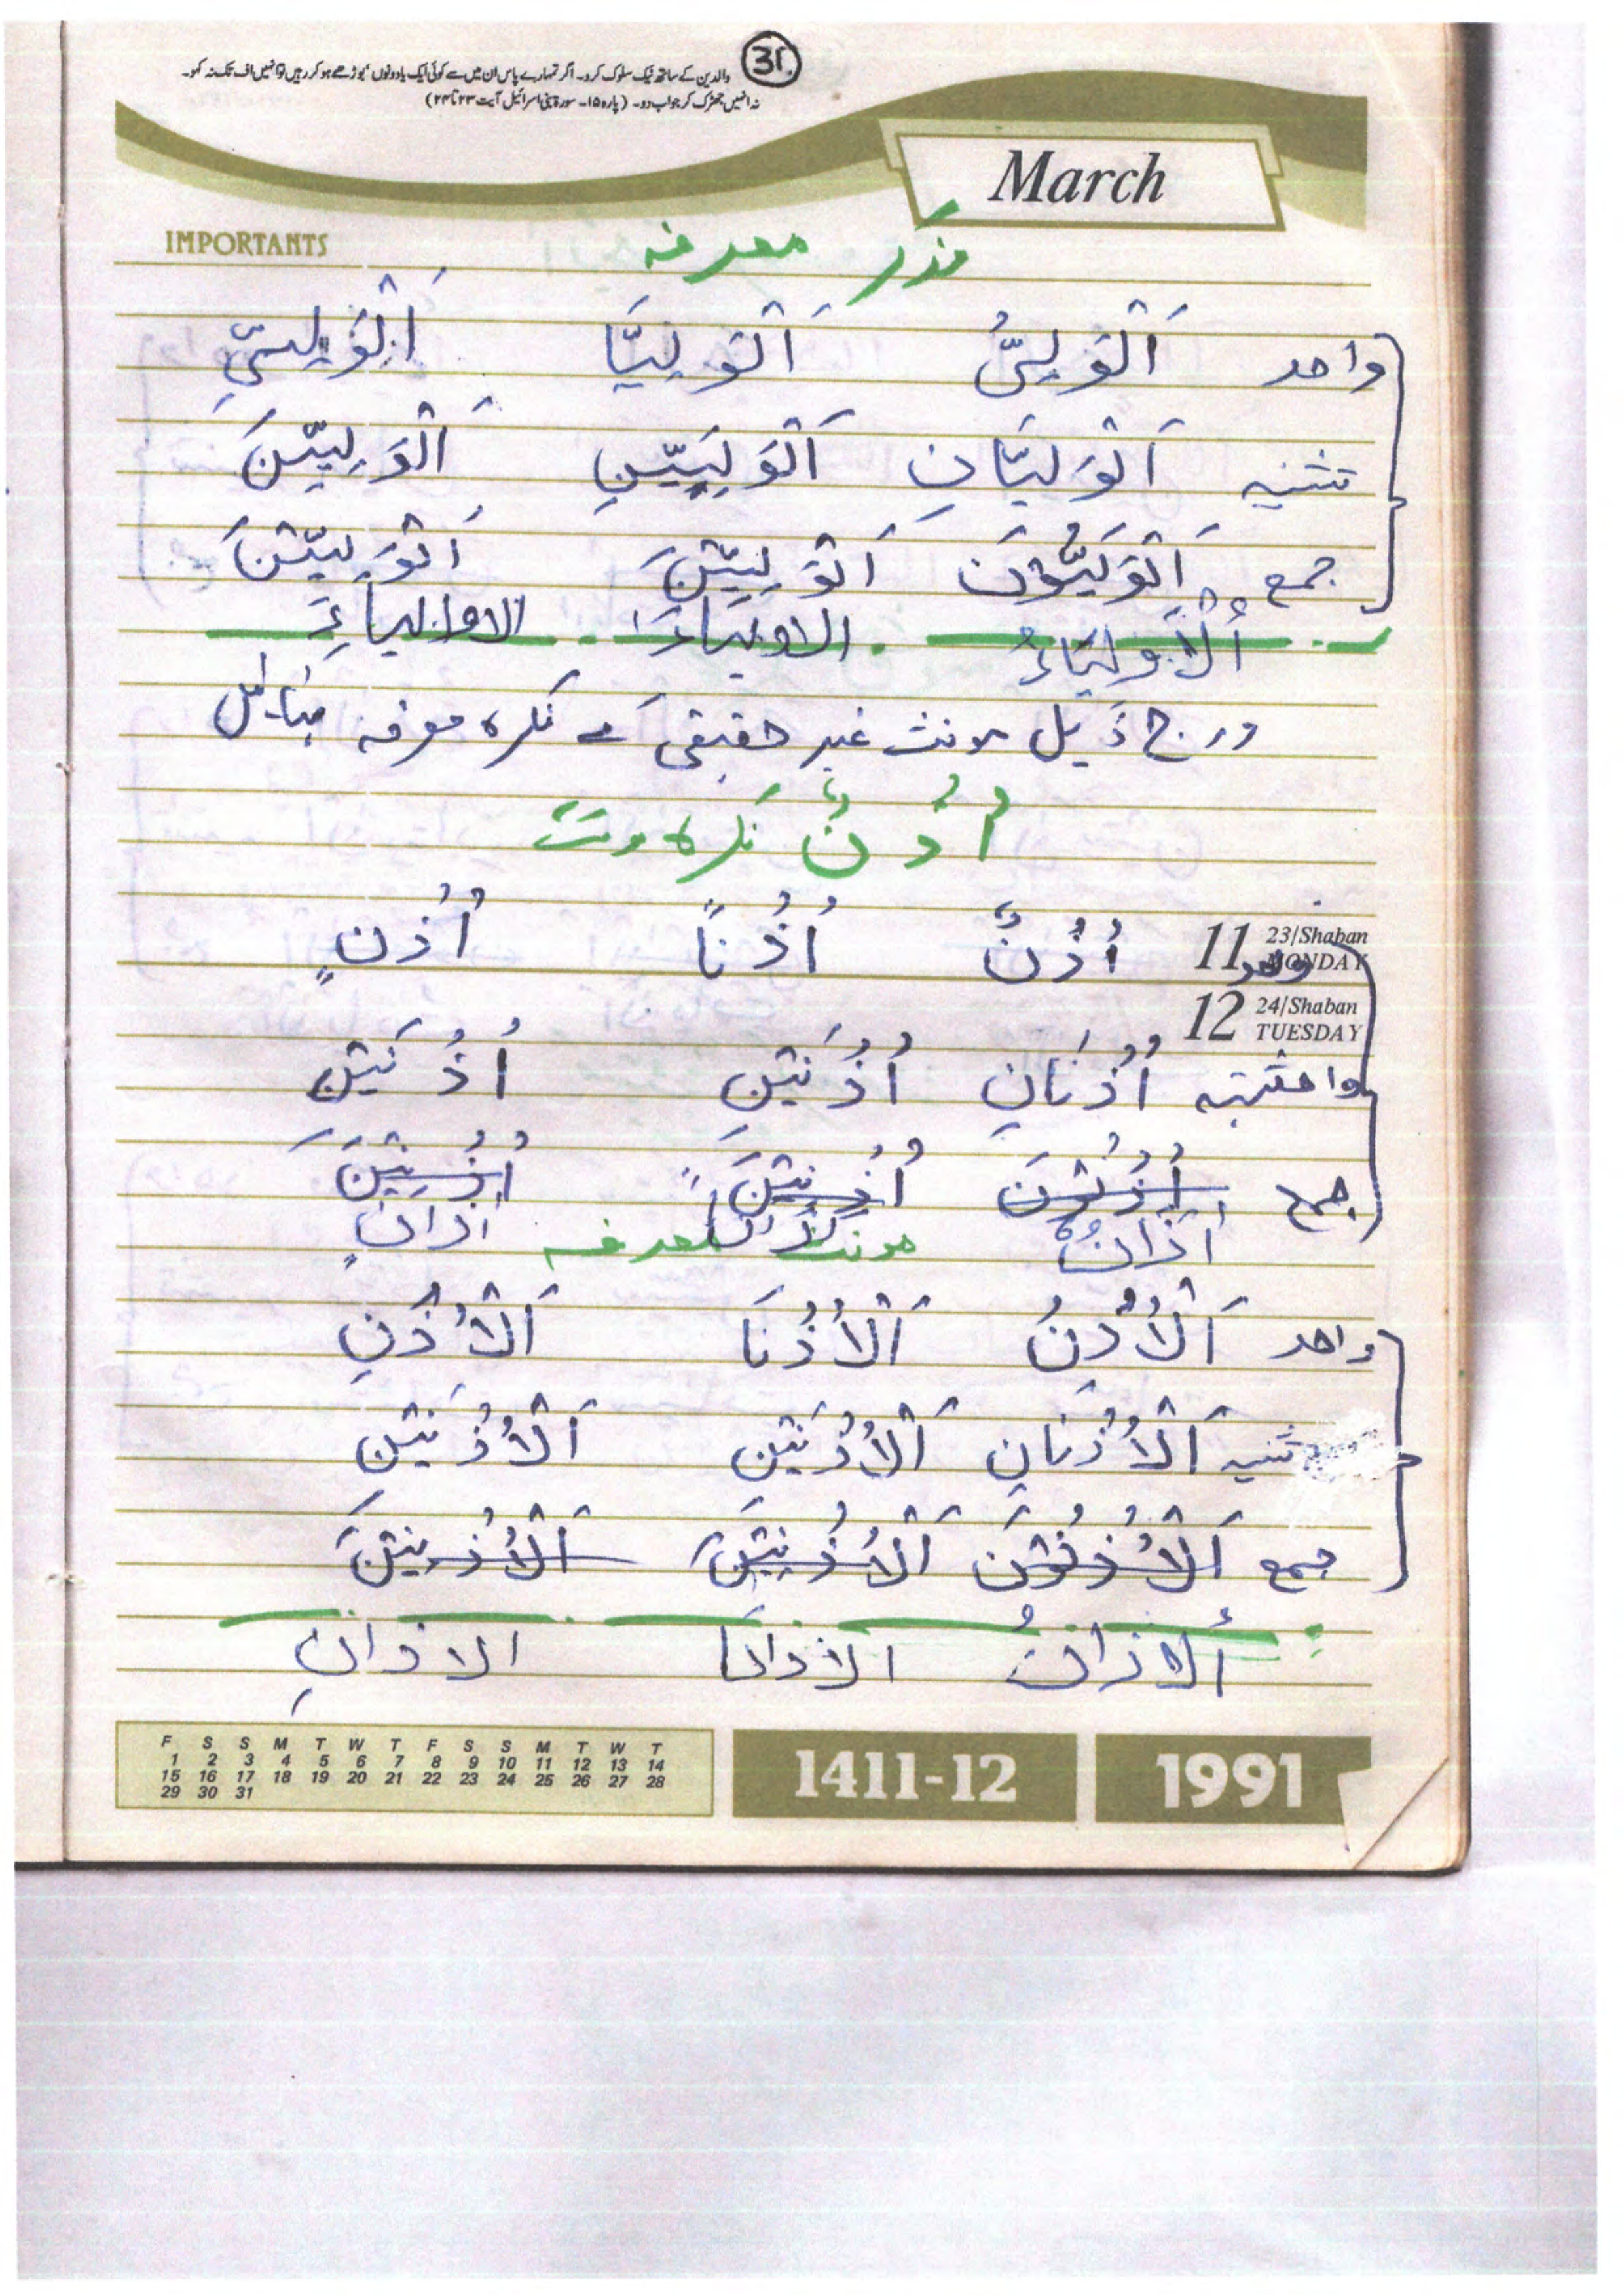 31.
والدین کے ساتھ نیک سلوک کرو۔ اگر تمہارے پاس ان میں سے کوئی ایک یا دونوں بوڑھے ہو کر رہیں تو انہیں اف تک نہ کہو۔
نہ انہیں جھڑک کر جواب دو۔ (پارہ ۱۵۔ سورۃ بنی اسرائیل آیت ۲۳ تا ۲۴)
March
IMPORTANTS
مذکر معرفہ
واحد اَلْوَلِیُّ اَلْوَلِیَّا اَلْوَلِیِّ
تثنیہ اَلْوَلِیَّانِ اَلْوَلِیَّیْنِ اَلْوَلِیّیْنَ
جمع اَلْوَلِیُّوْنَ اَلْوَلِیّیْنَ اَلْوَلِیّیْنَ
اَلْاَوْلِیَاءُ الاولیاءَ الاولیاءِ
درج ذیل مونث غیر حقیقی سے نکرہ معرفہ بنائیں
اُذُنٌ نکرہ مونث
11 23/Shaban MONDAY
واحد اُذُنٌ اُذُنًا اُذُنٍ
12 24/Shaban TUESDAY
تثنیہ اُذُنَانِ اُذُنَیْنِ اُذُنَیْنِ
جمع اُذُنُوْنَ اُذُنِیْنَ اُذُنِیْنَ
اٰذَانٌ اذانًا اذانٍ
مونث معرفہ
واحد اَلْاُذُنُ اَلْاُذُنَا اَلْاُذُنِ
تثنیہ اَلْاُذُنَانِ اَلْاُذُنَیْنِ اَلْاُذُنَیْنِ
جمع اَلْاُذُنُوْنَ اَلْاُذُنِیْنَ اَلْاُذُنِیْنَ
اَلاذانُ الاذانَا الاذانِ
F S S M T W T F S S M T W T
1 2 3 4 5 6 7 8 9 10 11 12 13 14
15 16 17 18 19 20 21 22 23 24 25 26 27 28
29 30 31
1411-12 1991